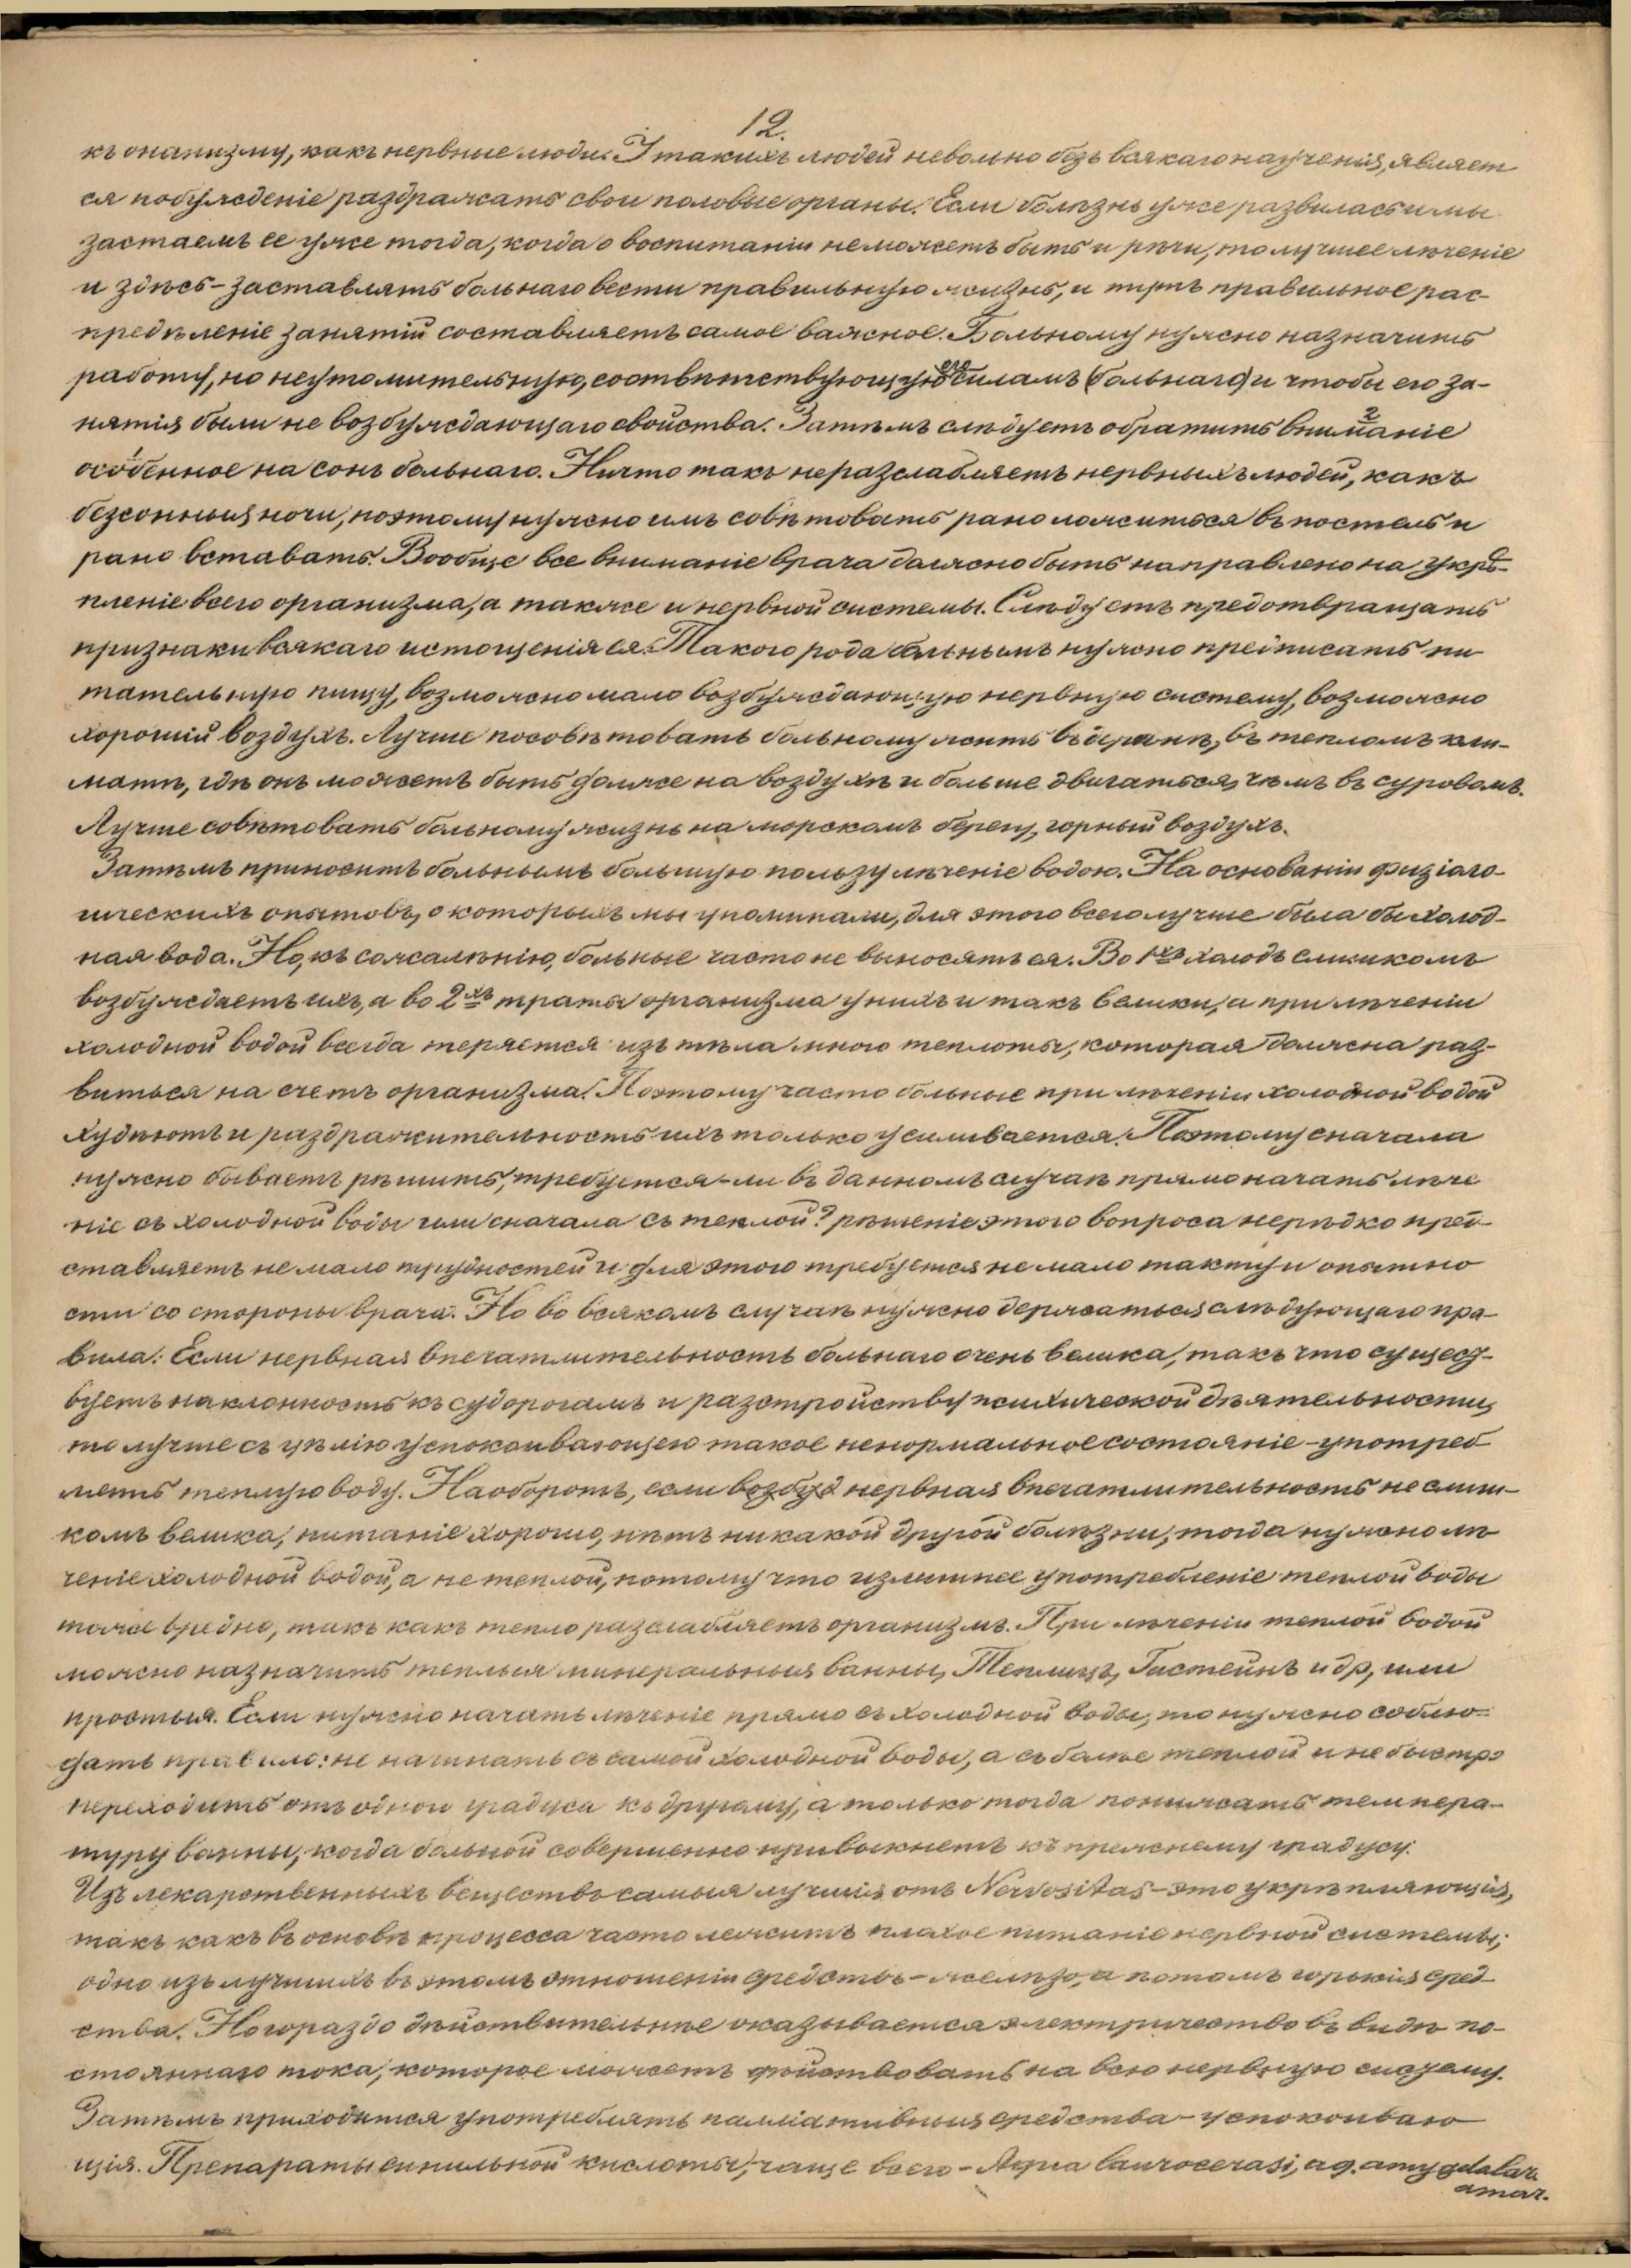 12.
къ онанизму, какъ нервные люди. У такихъ людей невольно безъ всякаго наученія, являет
ся побужденіе раздражать свои половые органы. Если болѣзнь уже развилась и мы
застаемъ ее уже тогда, когда о воспитаніи не можетъ быть и рѣчи, то лучшее лѣченіе
и здѣсь - заставлять больнаго вести правильную жизнь, и тутъ правильное рас-
предѣленіе занятій составляетъ самое важное. Больному нужно назначить
работу, но неутомительную, соотвѣтствующую его силамъ (больнаго) и чтобы его за-
нятія были не возбуждающаго свойства. Затѣмъ слѣдуетъ обратить вниманіе
особенное на сонъ больнаго. Ничто такъ не разслабляетъ нервныхъ людей, какъ
безсонныя ночи, поэтому нужно имъ совѣтовать рано ложиться въ постель и
рано вставать. Вообще все вниманіе врача должно быть направлено на укрѣ-
пленіе всего организма, а также и нервной системы. Слѣдуетъ предотвращать
признаки всякаго истощенія ея. Такого рода больнымъ нужно предписать пи
тательную пищу, возможно мало возбуждающую нервную систему, возможно
хорошій воздухъ. Лучше посовѣтовать больному жить въ деревнѣ, въ тепломъ кли-
матѣ, гдѣ онъ можетъ быть дольше на воздухѣ и больше двигаться, чѣмъ въ суровомъ.
Лучше совѣтовать больному жизнь на морскомъ берегу, горный воздухъ.
Затѣмъ приноситъ больнымъ большую пользу лѣченіе водою. На основаніи физіоло-
гическихъ опытовъ, о которыхъ мы упоминали, для этого всего лучше была бы холод-
ная вода. Но, къ сожалѣнію, больные часто не выносятъ ея. Во 1хъ холодъ слишкомъ
возбуждаетъ ихъ, а во 2хъ траты организма у нихъ и такъ велики, а при лѣченіи
холодной водой всегда теряется изъ тѣла много теплоты, которая должна раз-
виться на счетъ организма. Поэтому часто больные при лѣченіи холодной водой
худѣютъ и раздражительность ихъ только усиливается. Поэтому сначала
нужно бываетъ рѣшить, требуется-ли въ данномъ случаѣ прямо начать лѣче
ніе съ холодной воды или сначала съ теплой? рѣшеніе этого вопроса нерѣдко пред-
ставляетъ не мало трудностей и для этого требуется не мало такту и опытно
сти со стороны врача. Но во всякомъ случаѣ нужно держаться слѣдующаго пра-
вила: Если нервная впечатлительность больнаго очень велика, такъ что сущест-
вуетъ наклонность къ судорогамъ и разстройству психической дѣятельности,
то лучше съ цѣлію успокоивающею такое ненормальное состояніе - употреб
лять теплую воду. Наоборотъ, если возбуд нервная впечатлительность не слиш-
комъ велика, питаніе хорошо, нѣтъ никакой другой болѣзни, тогда нужно лѣ
ченіе холодной водой, а не теплой, потому что излишнее употребленіе теплой воды
тоже вредно, такъ какъ тепло разслабляетъ организмъ. При лѣченіи теплой водой
можно назначить теплыя минеральныя ванны, Теплицъ, Гастейнъ и др, или
простыя. Если нужно начать лѣченіе прямо съ холодной воды, то нужно соблю-
дать правило: не начинать съ самой холодной воды, а съ болѣе теплой и не быстро
переходить отъ одного градуса къ другому, а только тогда понижать темпера-
туру ванны, когда больной совершенно привыкнетъ къ прежнему градусу.
Изъ лекарственныхъ веществъ самыя лучшія отъ Nervositas - это укрѣпляющія,
такъ какъ въ основѣ процесса часто лежитъ плохое питаніе нервной системы;
одно изъ лучшихъ въ этомъ отношеніи средствъ - желѣзо, а потомъ горькія сред-
ства. Но гораздо дѣйствительнѣе оказывается электричество въ видѣ по-
стояннаго тока, которое можетъ дѣйствовать на всю нервную систему.
Затѣмъ приходится употреблять палліативныя средства - успокоиваю
щія. Препараты синильной кислоты, чаще всего - Aqua laurocerasi, aq. amygdalar.
amar.